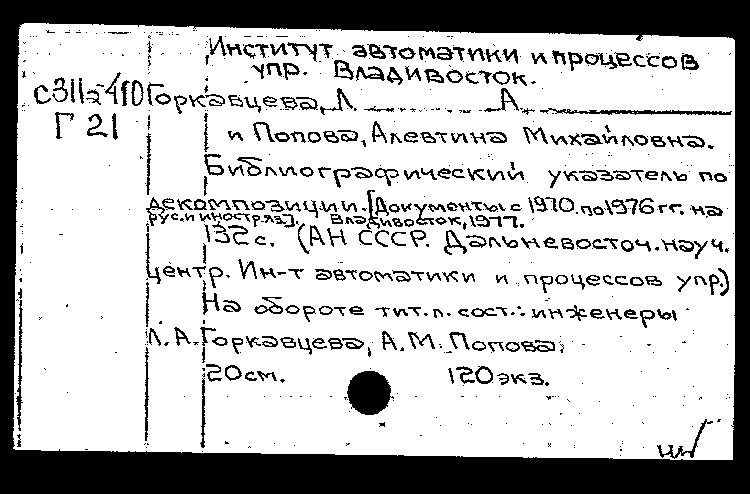 Институт автоматики и процессов
упр. Владивосток.
с311а-410
Г 21
Горкавцева, Л. А.
и Попова, Алевтина Михайловна.
Библиографический указатель по
декомпозиции. [Документы с 1970 по 1976 гг. на
рус. и иностр. яз]. Владивосток, 1977.
132 с. (АН СССР. Дальневосточ. науч.
центр. Ин-т автоматики и процессов упр.)
На обороте тит. л. сост.: инженеры
Л. А. Горкавцева, А. М. Попова.
20 см. 120 экз.